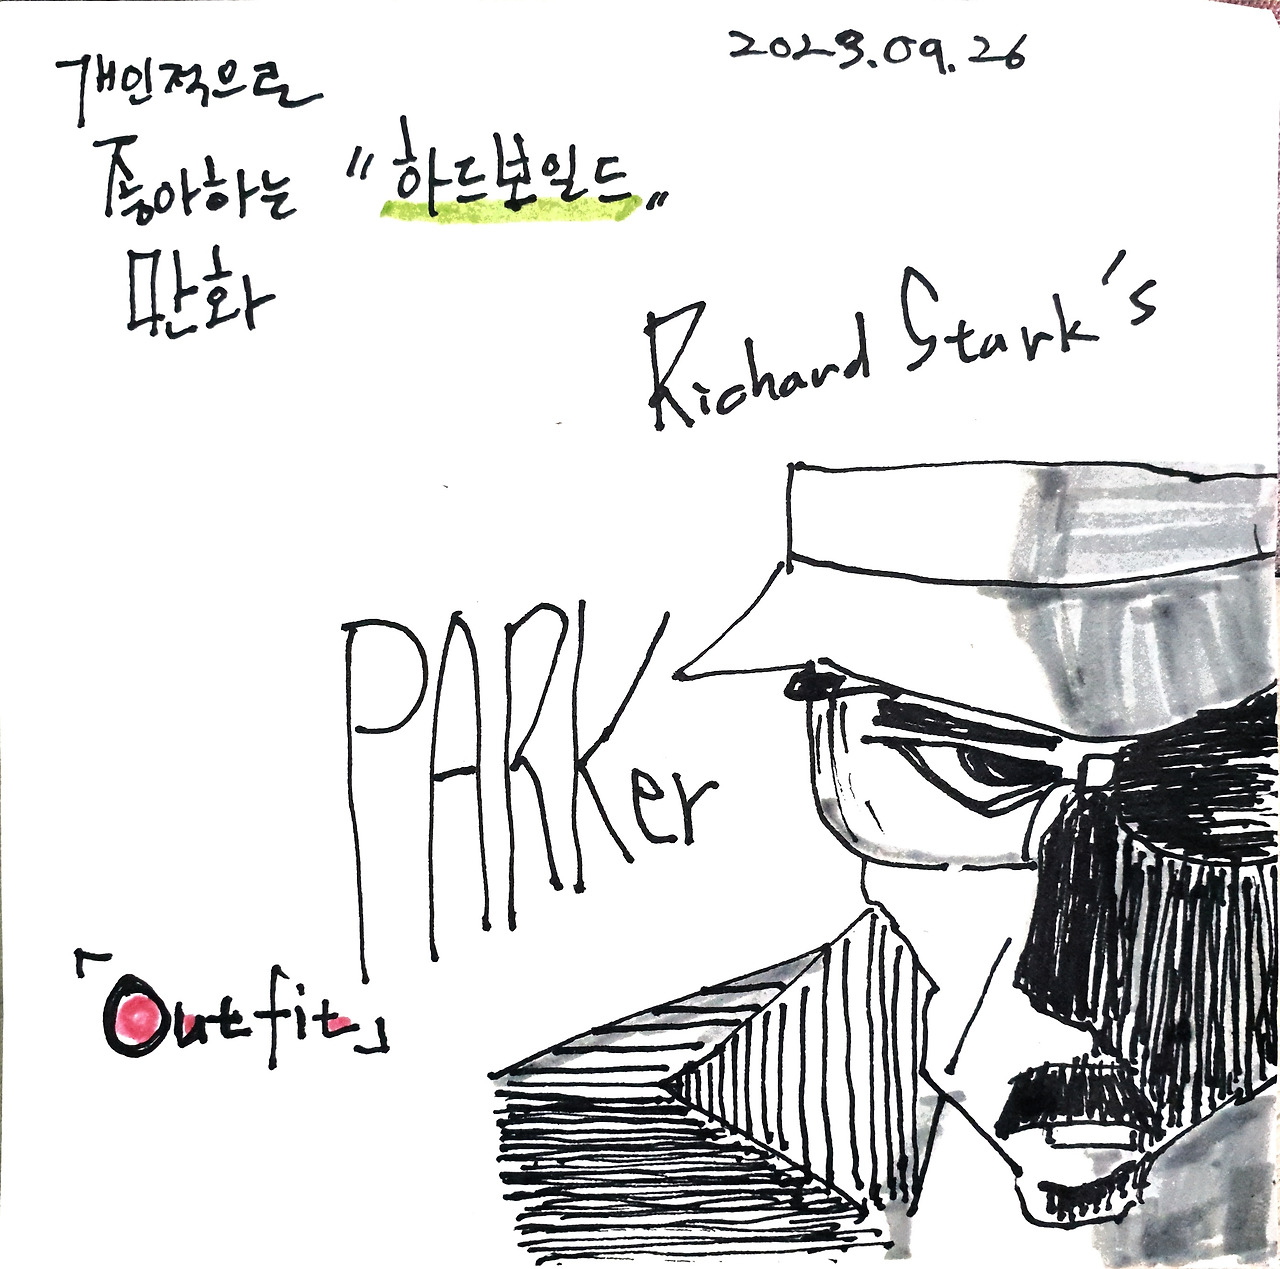 2023.09.26
개인적으로
좋아하는 "하드보일드"
만화
Richard Stark's
PARKer
「Outfit」